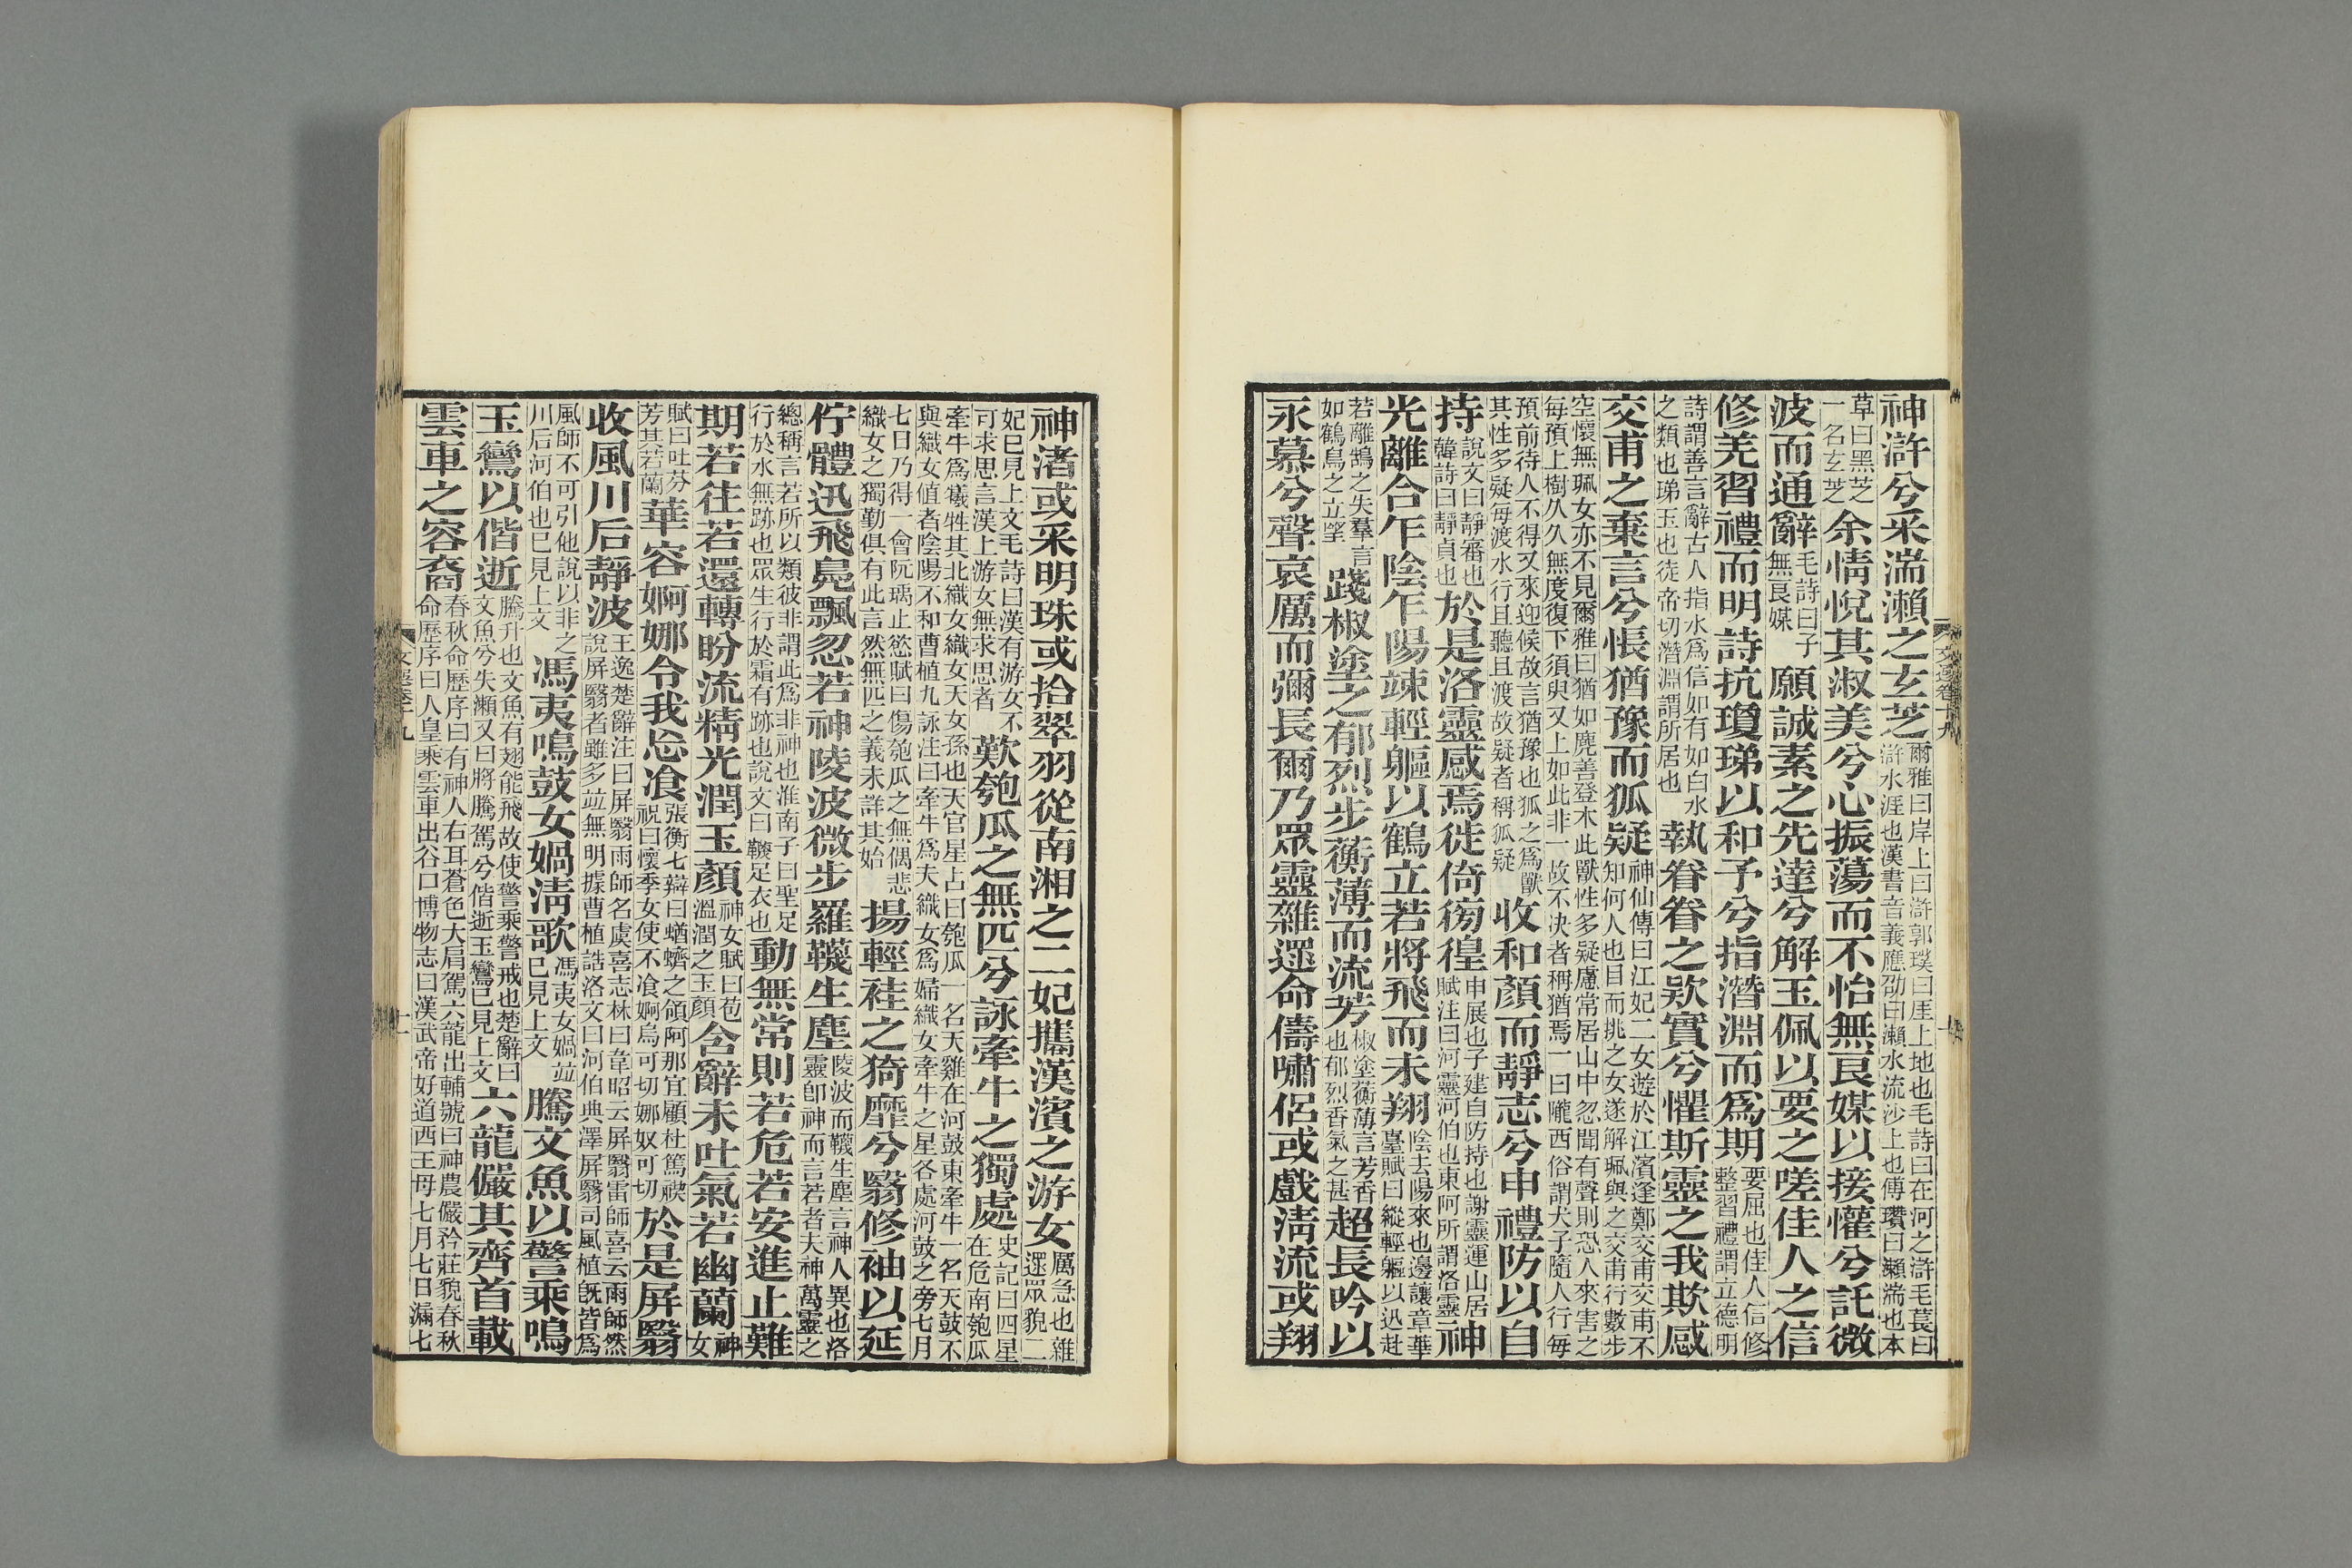 神滸兮采湍瀨之玄芝爾雅曰岸上曰滸郭璞曰厓上地也毛詩曰在河之滸毛萇曰滸水涯也漢書音義應劭曰瀨水流沙上也傅瓚曰瀨湍也本
草曰黑芝一名玄芝余情悅其淑美兮心振蕩而不怡無良媒以接懽兮託微
波而通辭毛詩曰子無良媒願誠素之先達兮解玉佩以要之嗟佳人之信
修羌習禮而明詩抗瓊珶以和予兮指潛淵而爲期要屈也佳人信修整習禮謂立德明
詩謂善言辭古人指水爲信如有如白水之類也珶玉也徒帝切潛淵謂所居也執眷眷之款實兮懼斯靈之我欺感
交甫之棄言兮悵猶豫而狐疑神仙傳曰江妃二女遊於江濱逢鄭交甫交甫不知何人也目而挑之女遂解珮與之交甫行數步
空懷無珮女亦不見爾雅曰猶如麂善登木此獸性多疑慮常居山中忽聞有聲則恐人來害之每預上樹久久無度復下須臾又上如此非一故不决者稱猶焉一曰隴西俗謂犬子隨人行每
預前待人不得又來迎候故言猶豫也狐之爲獸其性多疑每渡水行且聽且渡故疑者稱狐疑收和顏而靜志兮申禮防以自
持說文曰靜審也韓詩曰靜貞也於是洛靈感焉徙倚徬徨申展也子建自防持也謝靈運山居賦注曰河靈河伯也東阿所謂洛靈神
光離合乍陰乍陽竦輕軀以鶴立若將飛而未翔陰去陽來也邊讓章華臺賦曰縱輕軀以迅赴
若離鵠之失羣言如鶴鳥之立望踐椒塗之郁烈步蘅薄而流芳椒塗蘅薄言芳香也郁烈香氣之甚超長吟以
永慕兮聲哀厲而彌長爾乃眾靈雜遝命儔嘯侶或戲淸流或翔
神渚或采明珠或拾翠羽從南湘之二妃攜漢濱之游女厲急也雜遝眾貌二
妃已見上文毛詩曰漢有游女不可求思言漢上游女無求思者歎匏瓜之無匹兮詠牽牛之獨處史記曰四星在危南匏瓜
牽牛爲犧牲其北織女織女天女孫也天官星占曰匏瓜一名天雞在河鼓東牽牛一名天鼓不與織女值者陰陽不和曹植九詠注曰牽牛爲夫織女爲婦織女牽牛之星各處河鼓之旁七月
七日乃得一會阮瑀止慾賦曰傷匏瓜之無偶悲織女之獨勤俱有此言然無匹之義未詳其始揚輕袿之猗靡兮翳修袖以延
佇體迅飛鳧飄忽若神陵波微步羅韈生塵陵波而韈生塵言神人異也洛靈卽神而言若者夫神萬靈之
總稱言若所以類彼非謂此爲非神也淮南子曰聖足行於水無跡也眾生行於霜有跡也說文曰韈足衣也動無常則若危若安進止難
期若往若還轉盼流精光潤玉顏神女賦曰苞溫潤之玉顏含辭未吐氣若幽蘭神女
賦曰吐芬芳其若蘭華容婀娜令我忘飡張衡七辯曰蝤蠐之領阿那宜顧杜篤禊祝曰懷季女使不飡婀烏可切娜奴可切於是屏翳
收風川后靜波王逸楚辭注曰屏翳雨師名虞喜志林曰韋昭云屏翳雷師喜云雨師然說屏翳者雖多竝無明據曹植誥洛文曰河伯典澤屏翳司風植旣皆爲
風師不可引他說以非之川后河伯也已見上文馮夷鳴鼓女媧淸歌馮夷女媧竝已見上文騰文魚以警乘鳴
玉鸞以偕逝騰升也文魚有翅能飛故使警乘警戒也楚辭曰文魚兮失瀨又曰將騰駕兮偕逝玉鸞已見上文六龍儼其齊首載
雲車之容裔春秋命歷序曰有神人右耳蒼色大肩駕六龍出輔號曰神農儼矜莊貌春秋命歷序曰人皇乘雲車出谷口博物志曰漢武帝好道西王母七月七日漏七